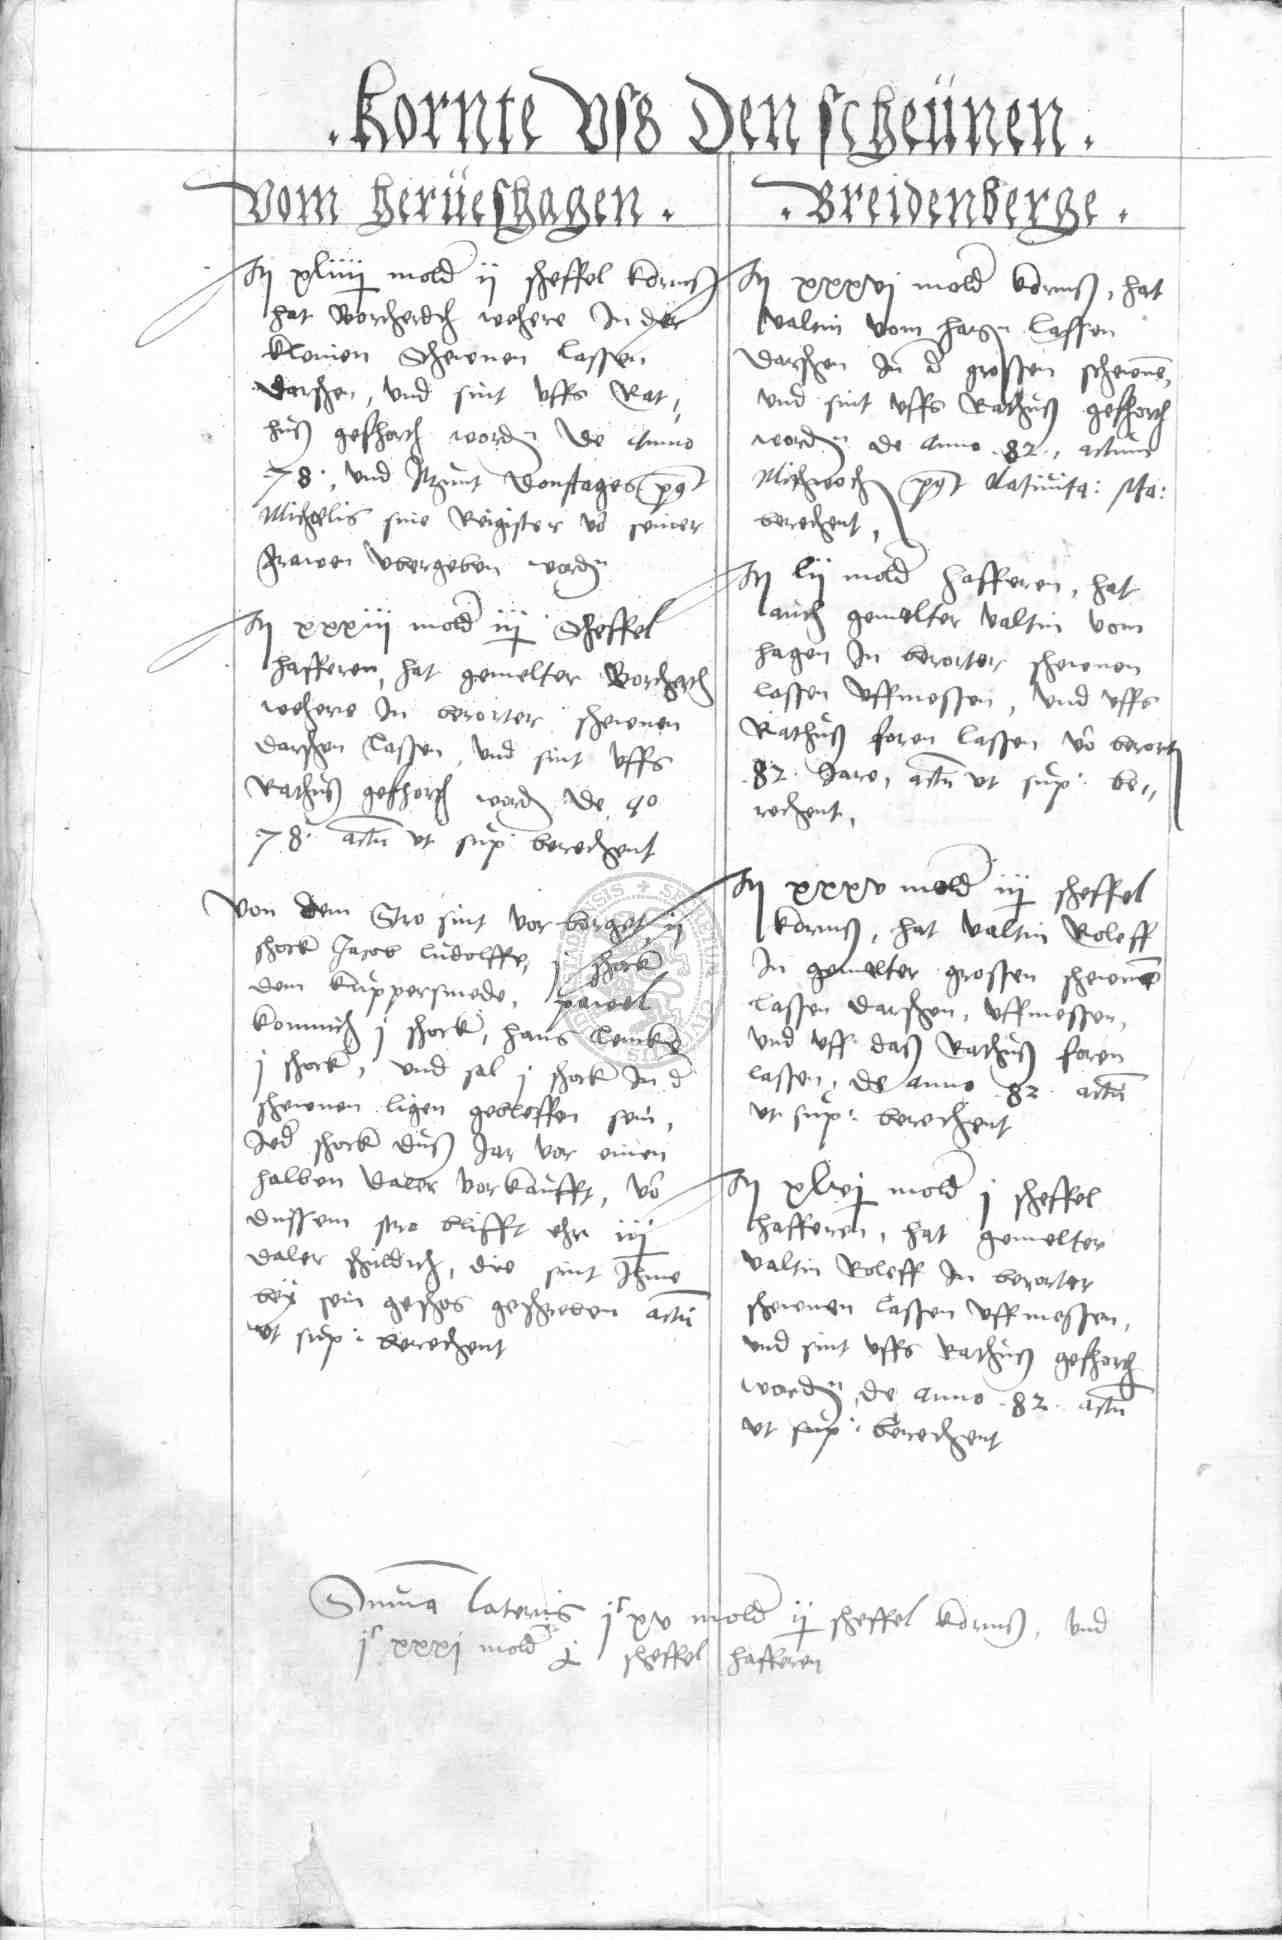 . Kornte Vß Den scheünen .
Vom herüeshagen .
It xliiij mold ij scheffel korns
hat Borcherdt wehere In der
kleinen Schewnen lassen
darschen, vnd sint vffs Rat„
huß gefhort wordn de Anno
78 , vnd Itzunt Donstages post
Michaelis sine Register vo seiner
frawen vbergeben wordn
It xxxiij mold iij Scheffel
hafferen, hat gemelter Borcherdt
wehere In berorter schewnen
darschen lassen, vnd sint vffs
Rathuß gefhort word de Ao
78 actu vt sup: berechent
Von dem Stro sint vor borget, ij
shock Jacob ludolffe, j shock
dem kuppersmede, pawel
konnich j shock, hans lemke
j shock, vnd sal j shock In d
schewnen ligen gebleffen sein,
Jed shock duß Jar vor einen
halben daler vorkaufft, vo
dussem stro blifft ehr iij
daler schuldich, die sint Ihme
bey sein geschos geschreben actu
vt sup: berechent
. Breidenberge .
It xxxvj mold korns, hat
Valtin vom hagn lassen
darschen In d grossen schewne,
vnd sint vffs Rathuß gefhort
wordn de anno .82., actum
Mithwoch post Natiuita: Ma:
berechent,
It lij mold hafferen, hat
auch gemelter Valtin vom
hagen In berorter schewnen
lassen vffmessen, vnd vffs
Rathuß foren lassen vo berort
.82. Jare, actu vt sup: be„
rechent,
It xxxv mold iij scheffel
korns, hat Valtin Roleff
In gemelter grossen schewne
lassen darschen, vffmessen,
vnd vff das Rathuß foren
lassen, de anno .82. actu
vt sup: berechent
It xlvj mold j scheffel
hafferen, hat gemelter
Valtin Roleff In berorter
schewnen lassen vffmessen,
vnd sint vffs Rathuß gefhort
wordn, de anno .82. actu
vt sup: berechent
Suma lateris jc xv mold ij scheffel korns, vnd
jc xxxj mold scheffel hafferen